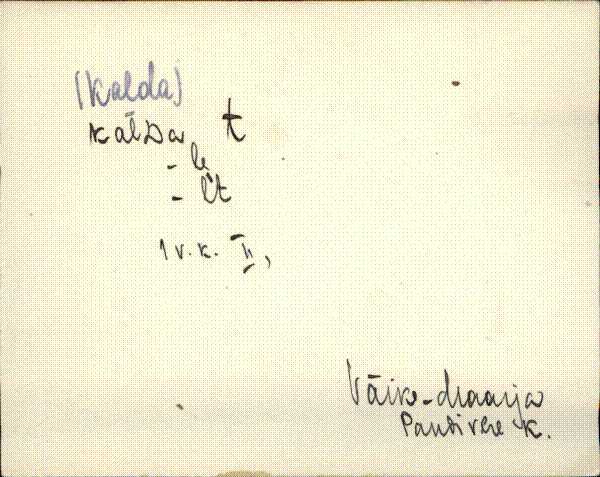 (Kalda)
kālDa, t
- le
- lt
1 v. k. II,
Väike-Maarja
Pandivere k.